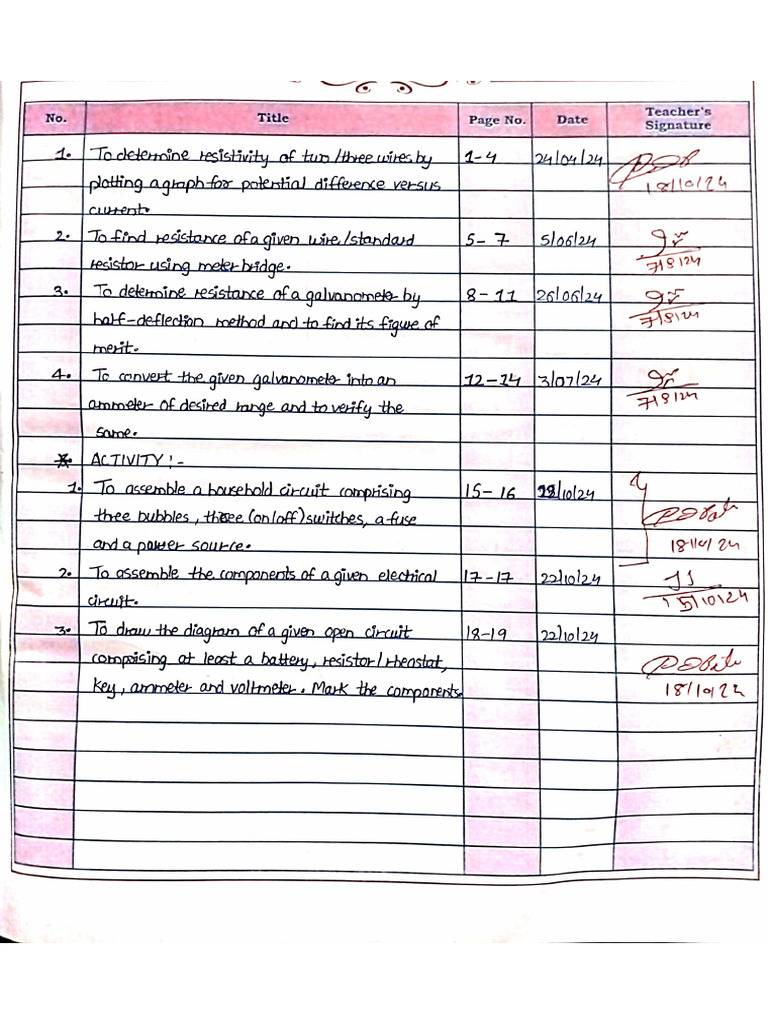 No. Title Page No. Date Teacher's Signature
1. To determine resistivity of two/three wires by 1-4 24/04/24
plotting a graph for potential difference versus 18/10/24
current.
2. To find resistance of a given wire/standard 5-7 5/06/24
resistor using meter bridge. 7/8/24
3. To determine resistance of a galvanometer by 8-11 26/06/24
half-deflection method and to find its figure of 7/8/24
merit.
4. To convert the given galvanometer into an 12-14 3/07/24
ammeter of desired range and to verify the 7/8/24
same.
* ACTIVITY:-
1. To assemble a household circuit comprising 15-16 /10/24
three bubbles, three (on/off) switches, a fuse
and a power source. 18/10/24
2. To assemble the components of a given electrical 17-17 22/10/24
circuit. 15/10/24
3. To draw the diagram of a given open circuit 18-19 22/10/24
comprising at least a battery, resistor/rheastat,
key, ammeter and voltmeter. Mark the components 18/10/24